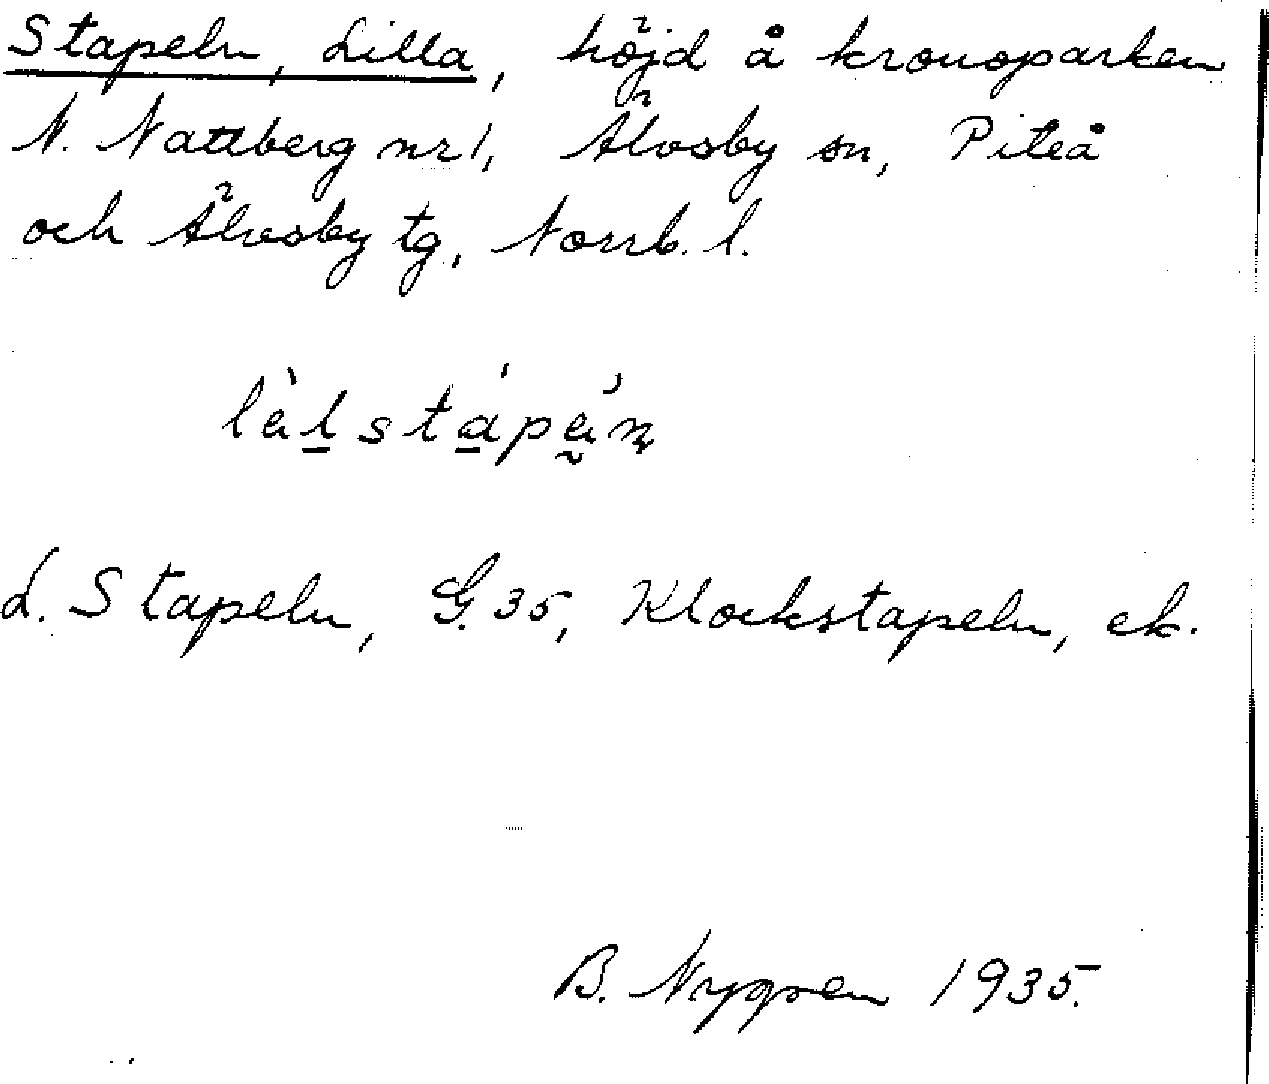 Stapeln, Lilla, höjd å kronoparken
N. Nattberg nr 1, Älvsby sn, Piteå
och Älvsby tg, Norrb. l.
lèl stápän
L. Stapeln, G. 35, Klockstapeln, ek.
B. Nygren 1935.